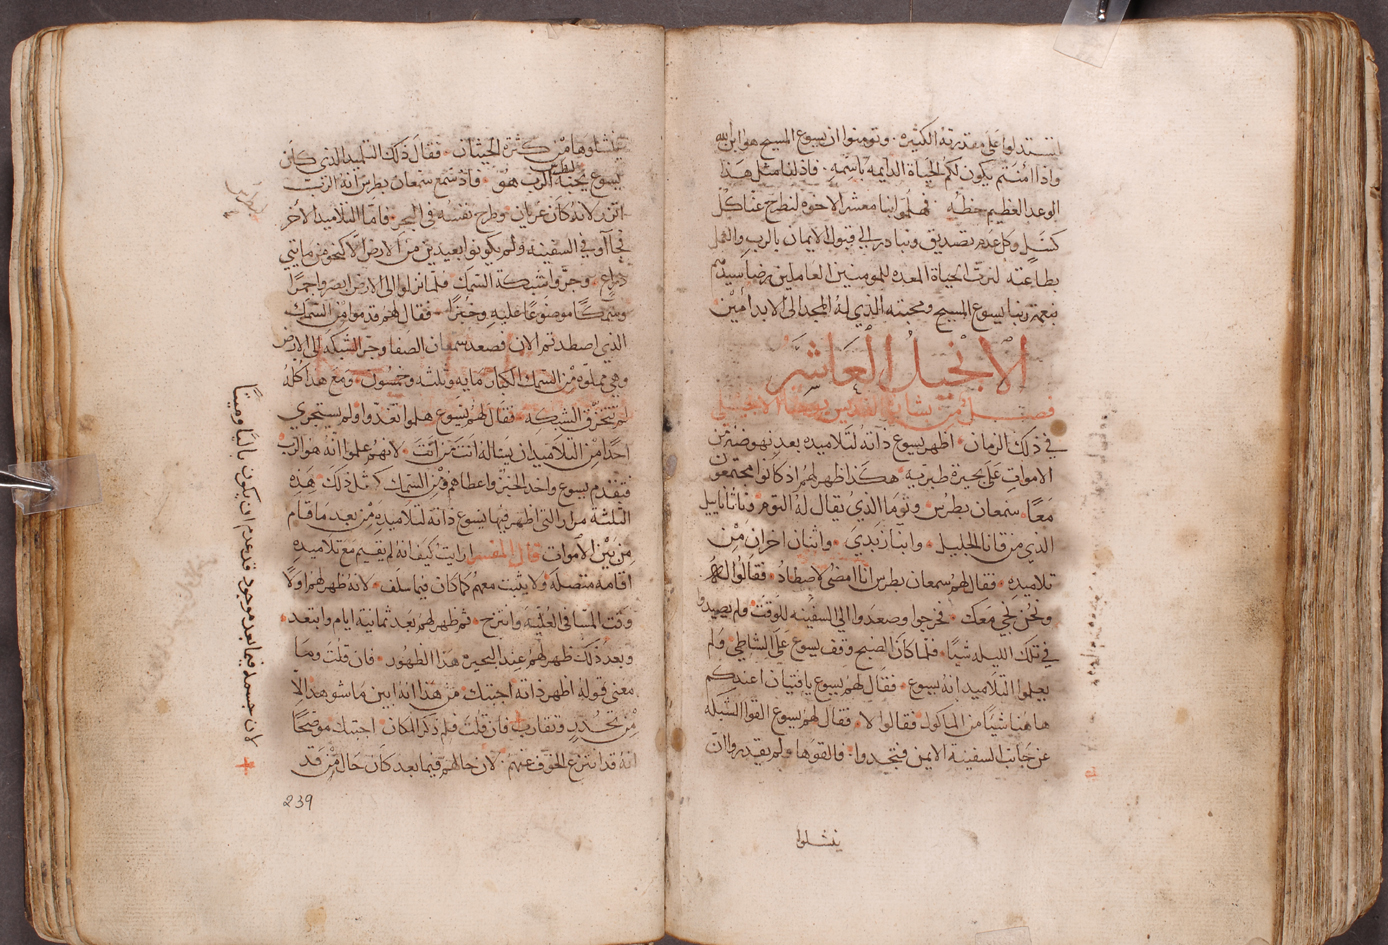 لتستدلوا على مقدرته الكثيره. وتومنوا ان يسوع المسيح هو ابن الله
واذا امنتم يكون لكم الحياة الدايمه باسمه. فاذ لنا مثل هذا
الوعد العظيم حظه فهلموا بنا معشر الاخوه لنطرح عنا كل
كسل وكل عدم تصديق ونبادر الى قبول الايمان بالرب والعمل
بطاعته لنرث الحياة المعده للمومنين العاملين مرضاة سيدهم
بنعمة ربنا يسوع المسيح ومحبته الذي له المجد الى الابد امين
الانجيل العاشر
فصل من بشارة القديس يوحنا الانجيلي
في ذلك الزمان. اظهر يسوع ذاته لتلاميذه بعد نهوضه من
الاموات على بحيرة طبريه هكذا ظهر لهم اذ كانوا مجتمعون
معا. سمعان بطرس. وتوما الذي يقال له التوم وناثاناييل
الذي من قانا الجليل. وابنا زبدي. واثنان اخران من
تلاميذه. فقال لهم سمعان بطرس انا امضي لاصطاد. فقالوا له
ونحن نجي معك. فخرجوا وصعدوا الي السفينه للوقت ولم يصيدوا
في تلك الليله شيا. فلما كان الصبح وقف يسوع على الشاطي ولم
يعلموا التلاميذ انه يسوع. فقال لهم يسوع يا فتيان اعندكم
هاهنا شيا من الماكول فقالوا لا. فقال لهم يسوع القوا الشبكه
عن جانب السفينه الايمن فتجدوا. فالقوها ولم يقدروا ان
ينشلوا
ينشلوها من كثرة الحيتان. فقال ذلك التلميذ الذي كان
يسوع يحبه لبطرس الرب هو. فاذ سمع سمعان بطرس انه الرب
اتزر لانه كان عريان وطرح نفسه في البحر. فاما التلاميذ الاخر
فجاآوا في السفينه ولم يكونوا بعيدين من الارض الا كنحو من مايتي
ذراع. وجروا شبكة السمك فلما نزلوا الى الارض ابصروا جمرا
وسمكا موضوعا عليه وخبزا. فقال لهم قدموا من السمك
الذي اصطدتم الان فصعد سمعان الصفا وجر الشبكه الى الارض
وهي مملوه من السمك الكبار مايه وثلثه وخمسون. ومع هذا كله
لم تتخرق الشبكه. فقال لهم يسوع هلموا تغدوا ولم يستجري
احدا من التلاميذ ان يساله انت من انت. لانهم علموا انه هو الرب
فتقدم يسوع واخد الخبز واعطاهم ومن السمك كمثل ذلك هذه
الثلثة مرار التي اظهر فيها يسوع ذاته لتلاميذه من بعد ما قام
من بين الاموات قال المفسر ارايت كيف انه لم يقيم مع تلاميذه
اقامة متصله ولا يثبت معهم كما كان فيما سلف. لانه ظهر لهم اولا
وقت المسا في العليه وانتزح. ثم ظهر لهم بعد ثمانية ايام وابتعد
وبعد ذلك ظهر لهم عند البحيره هذا الظهور. فان قلت وما
معنى قوله اظهر ذاته اجبتك من هذا انه ابين ما شوهد الا
من تحدد وتقارب فان قلت فلم ذكر المكان اجبتك موضحا
انه قد انتزع الخوف عنهم. لان حالهم فيما بعد كان حال من قد
لان جسده فيما بعد موجود قد عدم ان يكون باليا وميتا
239